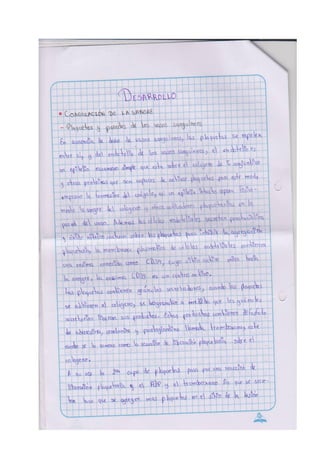 DESARROLLO
• COAGULACIÓN DE LA SANGRE
- Plaquetas y paredes de los vasos sanguíneos
En ausencia de daño de vasos sanguíneos, las plaquetas se repelen
entre sí, y del endotelio de los vasos sanguíneos, el endotelio es
un epitelio escamoso simple que está sobre el colágeno de T. conjuntivo
y otras proteínas que son capaces de activar plaquetas para este modo
empezar la formación del coágulo, un epitelio intacto separa
la sangre del colágeno y otros activadores plaquetarios en la
pared del vaso. Además las células endoteliales secretan prostaciclina
y óxido nítrico actúan sobre las plaquetas para inhibir la agregación
plaquetaria, la membrana plasmática de células endoteliales contienen
una enzima conocida como CD39, cuyo sitio activo mira hacia
la sangre, la enzima CD39 es un
Las plaquetas contienen gránulos secretadores, cuando las plaquetas
se adhieren al colágeno, se desgranulan a medida que los gránulos
secretorios liberan sus productos. Estos productos contienen difosfato
de adenosina, serotonina y prostaglandina llamada tromboxano, este
evento se lo conoce como la reacción de liberación plaquetaria sobre el
colágeno.
A su vez la capa de plaquetas pasa por una reacción de
liberación plaquetaria y el ADP y el tromboxano los que se secre-
tan hace que se agregen más plaquetas en el sitio de la lesión